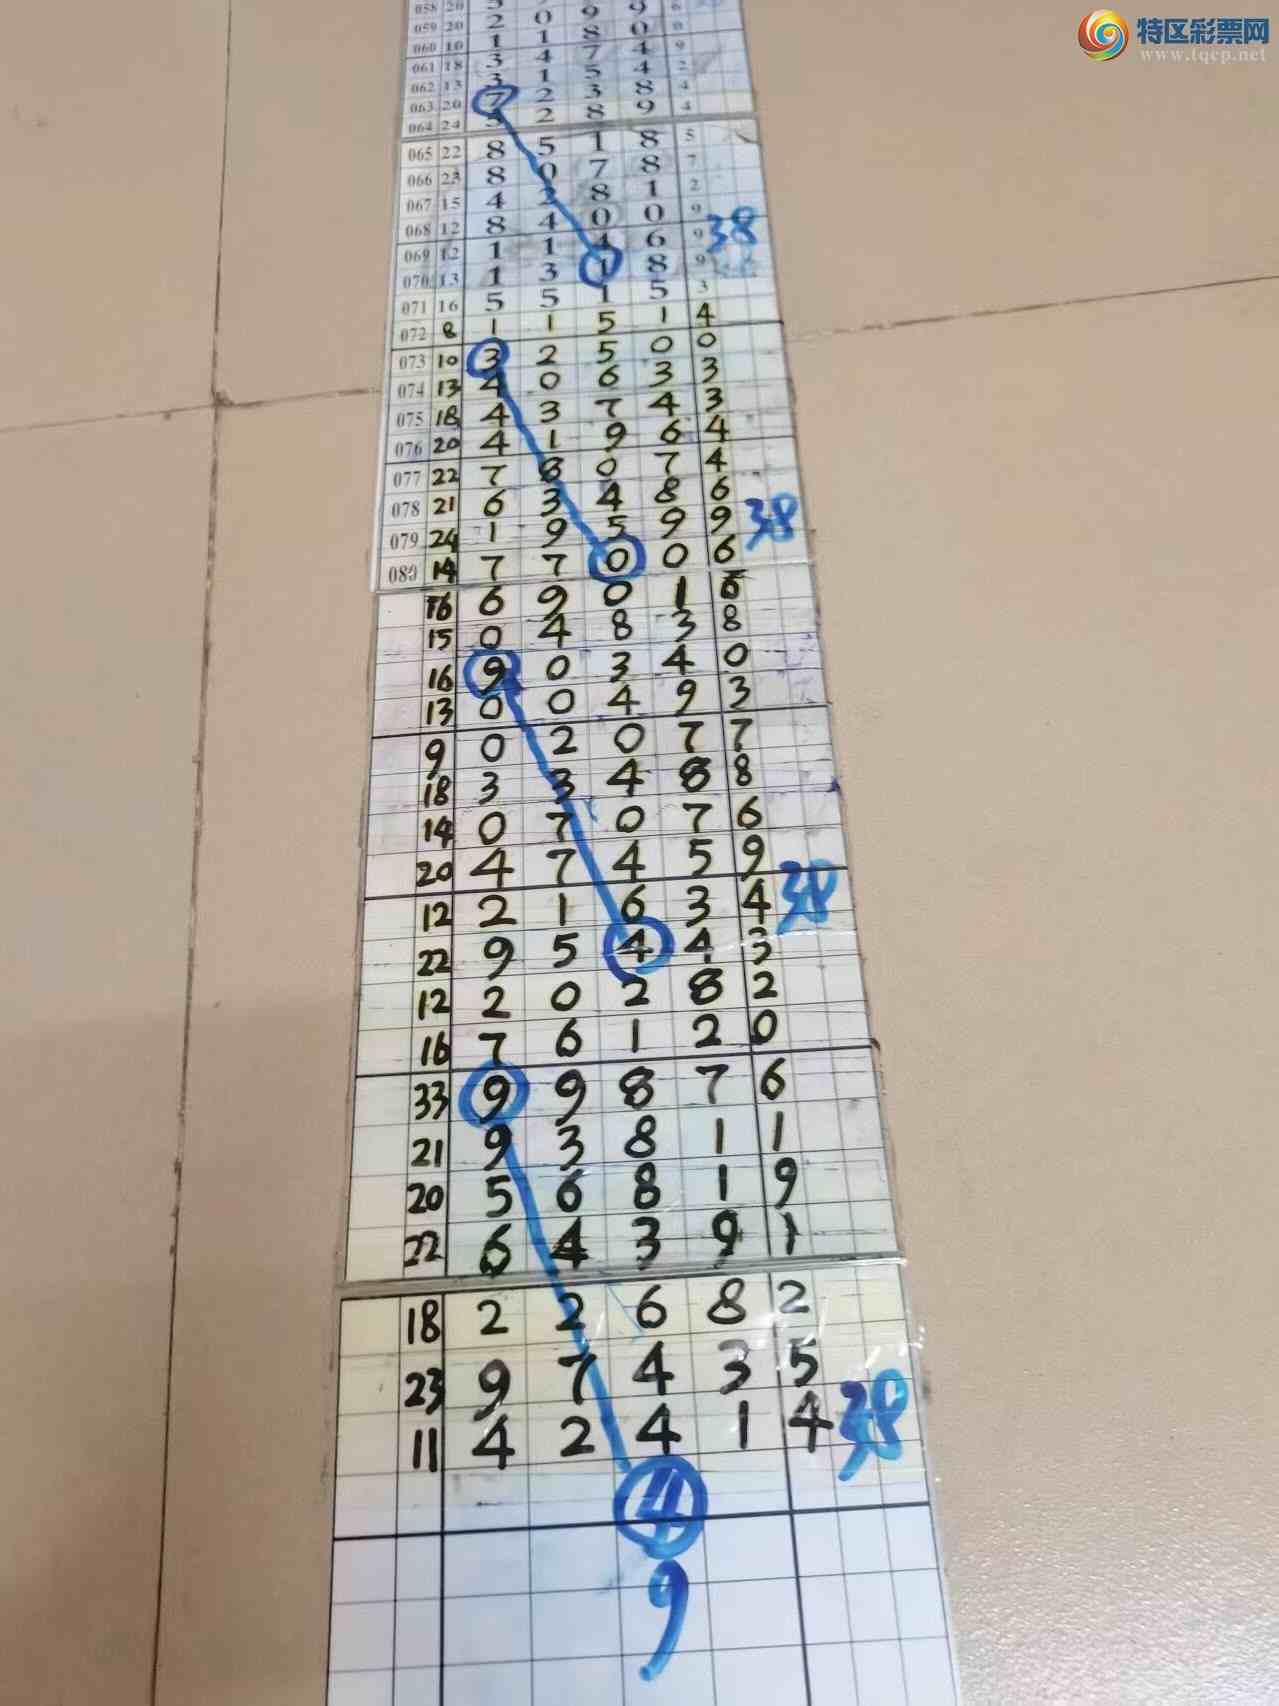 特区彩票网
www.tqcp.net
058 20
059 20 2 0 9 9 6
060 10 1 1 8 0 0
061 18 3 4 7 4 9
062 13 3 1 5 4 2
063 20 7 2 3 8 4
064 24 5 2 8 9 4
065 22 8 5 1 8 5
066 23 8 0 7 8 7
067 15 4 2 8 1 2
068 12 8 4 0 0 9
069 12 1 1 4 6 9 38
070 13 1 3 1 8 9
071 16 5 5 1 5 3
072 8 1 1 5 1 4
073 10 3 2 5 0 0
074 13 4 0 6 3 3
075 18 4 3 7 4 3
076 20 4 1 9 6 4
077 22 7 8 0 7 4
078 21 6 3 4 8 6
079 24 1 9 5 9 9 38
080 14 7 7 0 0 6
16 6 9 0 1 6
15 0 4 8 3 8
16 9 0 3 4 0
13 0 0 4 9 3
9 0 2 0 7 7
18 3 3 4 8 8
14 0 7 0 7 6
20 4 7 4 5 9
12 2 1 6 3 4 38
22 9 5 4 4 3
12 2 0 2 8 2
16 7 6 1 2 0
33 9 9 8 7 6
21 9 3 8 1 1
20 5 6 8 1 9
22 6 4 3 9 1
18 2 2 6 8 2
23 9 7 4 3 5
11 4 2 4 1 4 38
4
9